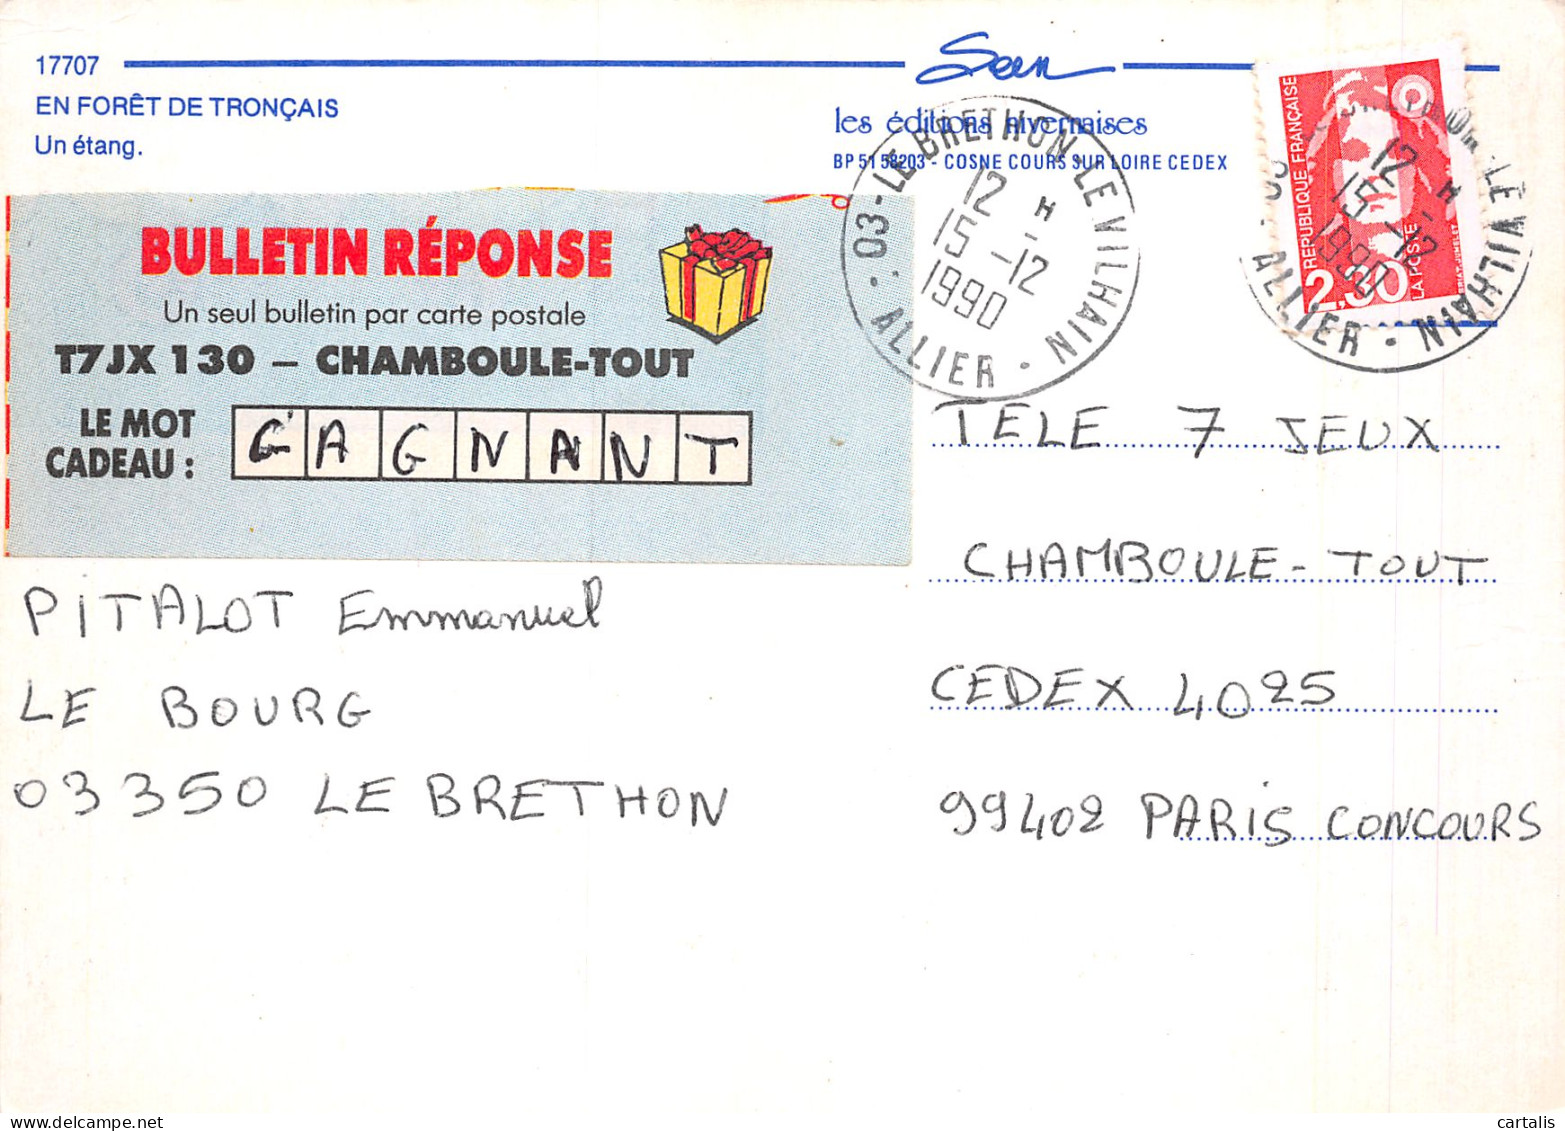 17707
EN FORÊT DE TRONÇAIS
Un étang.
Seen
les éditions nivernaises
BP 51 58203 - COSNE COURS SUR LOIRE CEDEX
03-LE BRETHON LE VILHAIN
12 H
15-12
1990
· ALLIER ·
REPUBLIQUE FRANÇAISE
2,30
LA POSTE
LE VILHAIN
12 H
15-12
1990
ALLIER ·
BULLETIN RÉPONSE
Un seul bulletin par carte postale
T7JX 130 – CHAMBOULE-TOUT
LE MOT
CADEAU :
GAGNANT
TELE 7 JEUX
CHAMBOULE-TOUT
CEDEX 4025
99402 PARIS CONCOURS
PITALOT Emmanuel
LE BOURG
03350 LE BRETHON
cartalis